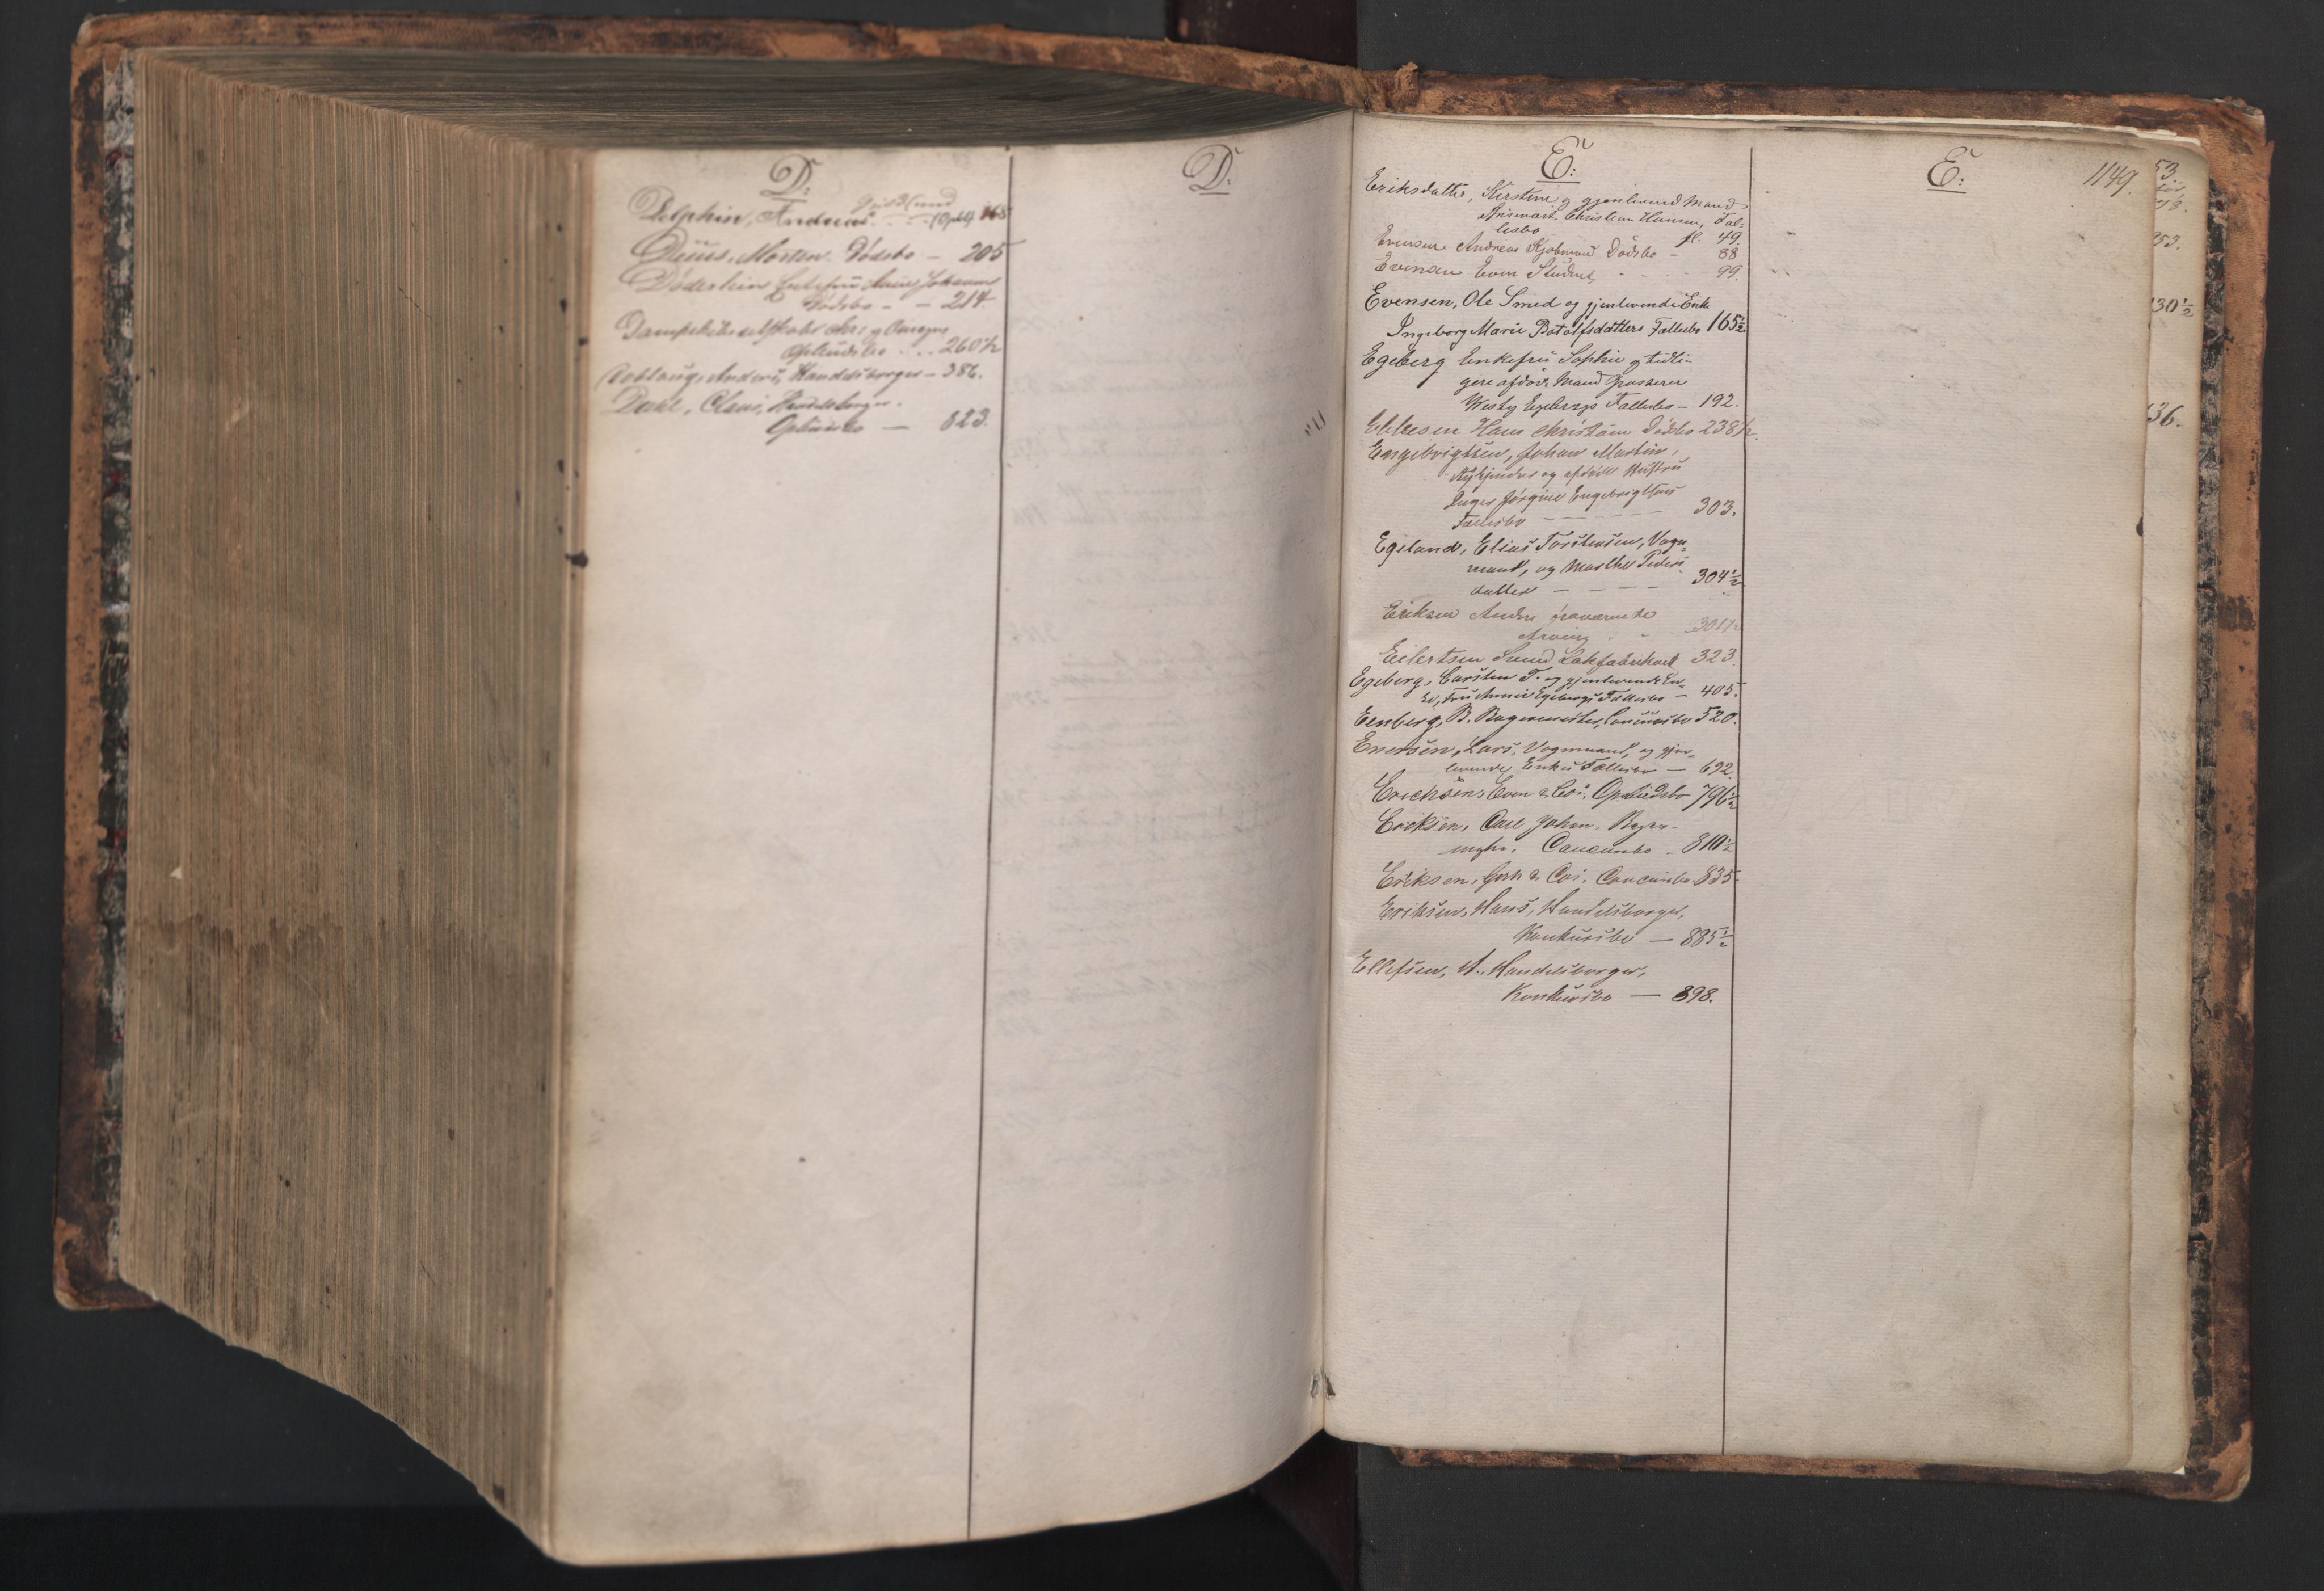 D:
Delphin, Andreas (Opb.) 165
Duus, Morten Dødsbo — 205
Dødsbo — 214
Opbudsbo . . 260½
Anders, Handelsborger — 386.
Dahl, Claus, Handelsborger.
Opbudsbo — 823.
D:
E:
Eriksdatter, Kirstine og gjenlevende Mand
Christian Hansen, Fæl-
lesbo fl. 49.
Evensen Andreas Kjøbmand Dødsbo — 88
Evensen Even Student 99.
Evensen, Ole Smed og gjenlevende Enke
Ingeborg Marie Botolfsdatters Fællesbo 165½
Egeberg Enkefru Sophie og tidli-
gere afdøde Mand Grosserer
Westy Egebergs Fællesbo — 192.
Ebbesen Hans Christian Dødsbo 238½.
Engebrigtsen, Johan Martin,
og afdøde Hustru
Inger Jørgine Engebrigtsens
Fællesbo — — — 303.
Egeland, Elias Torstensen, Vogn-
mand, og Marthe Peders-
datter — — — 304½
Eriksen Anders fraværende
Arving 301½
Eilertsen Sund Lakfabrikant 323.
Egeberg, Carsten T. og gjenlevende En-
ke, Fru Annie Egebergs Fællesbo — 405.
Eenberg, B. Bagermester, Concursbo 520.
Enersen, Lars, Vognmand, og gjen-
levende Enkes Fællesbo — 692.
Erichsen, Even & Co. Opbudsbo 796½
Eriksen, Carl Johan, Bager-
mester, Concursbo — 810½
Eriksen, & Co. Concursbo 835
Eriksen, Hans, Handelsborger,
Konkursbo — 885½
Ellefsen, A., Handelsborger,
Konkursbo — 898.
E:
1149.
53
353.
130½
136.